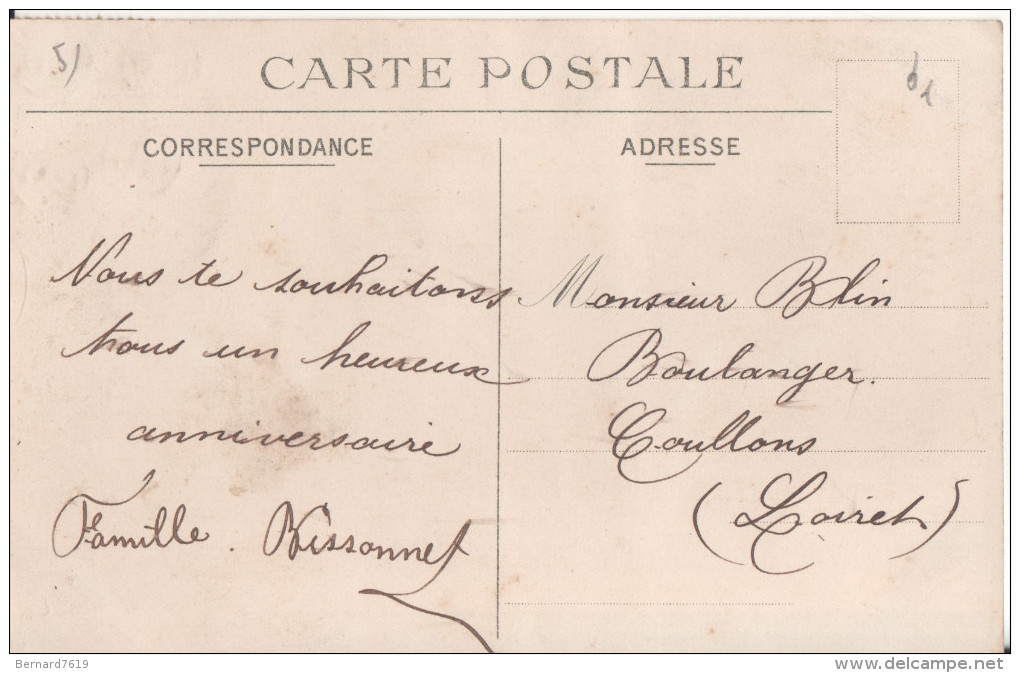 5)
CARTE POSTALE
CORRESPONDANCE
ADRESSE
Nous te souhaitons
tous un heureux
anniversaire
Famille. Bissonnet
Monsieur Blin
Boulanger.
Coullons
(Loiret)
Bernard7619
delcampe.net